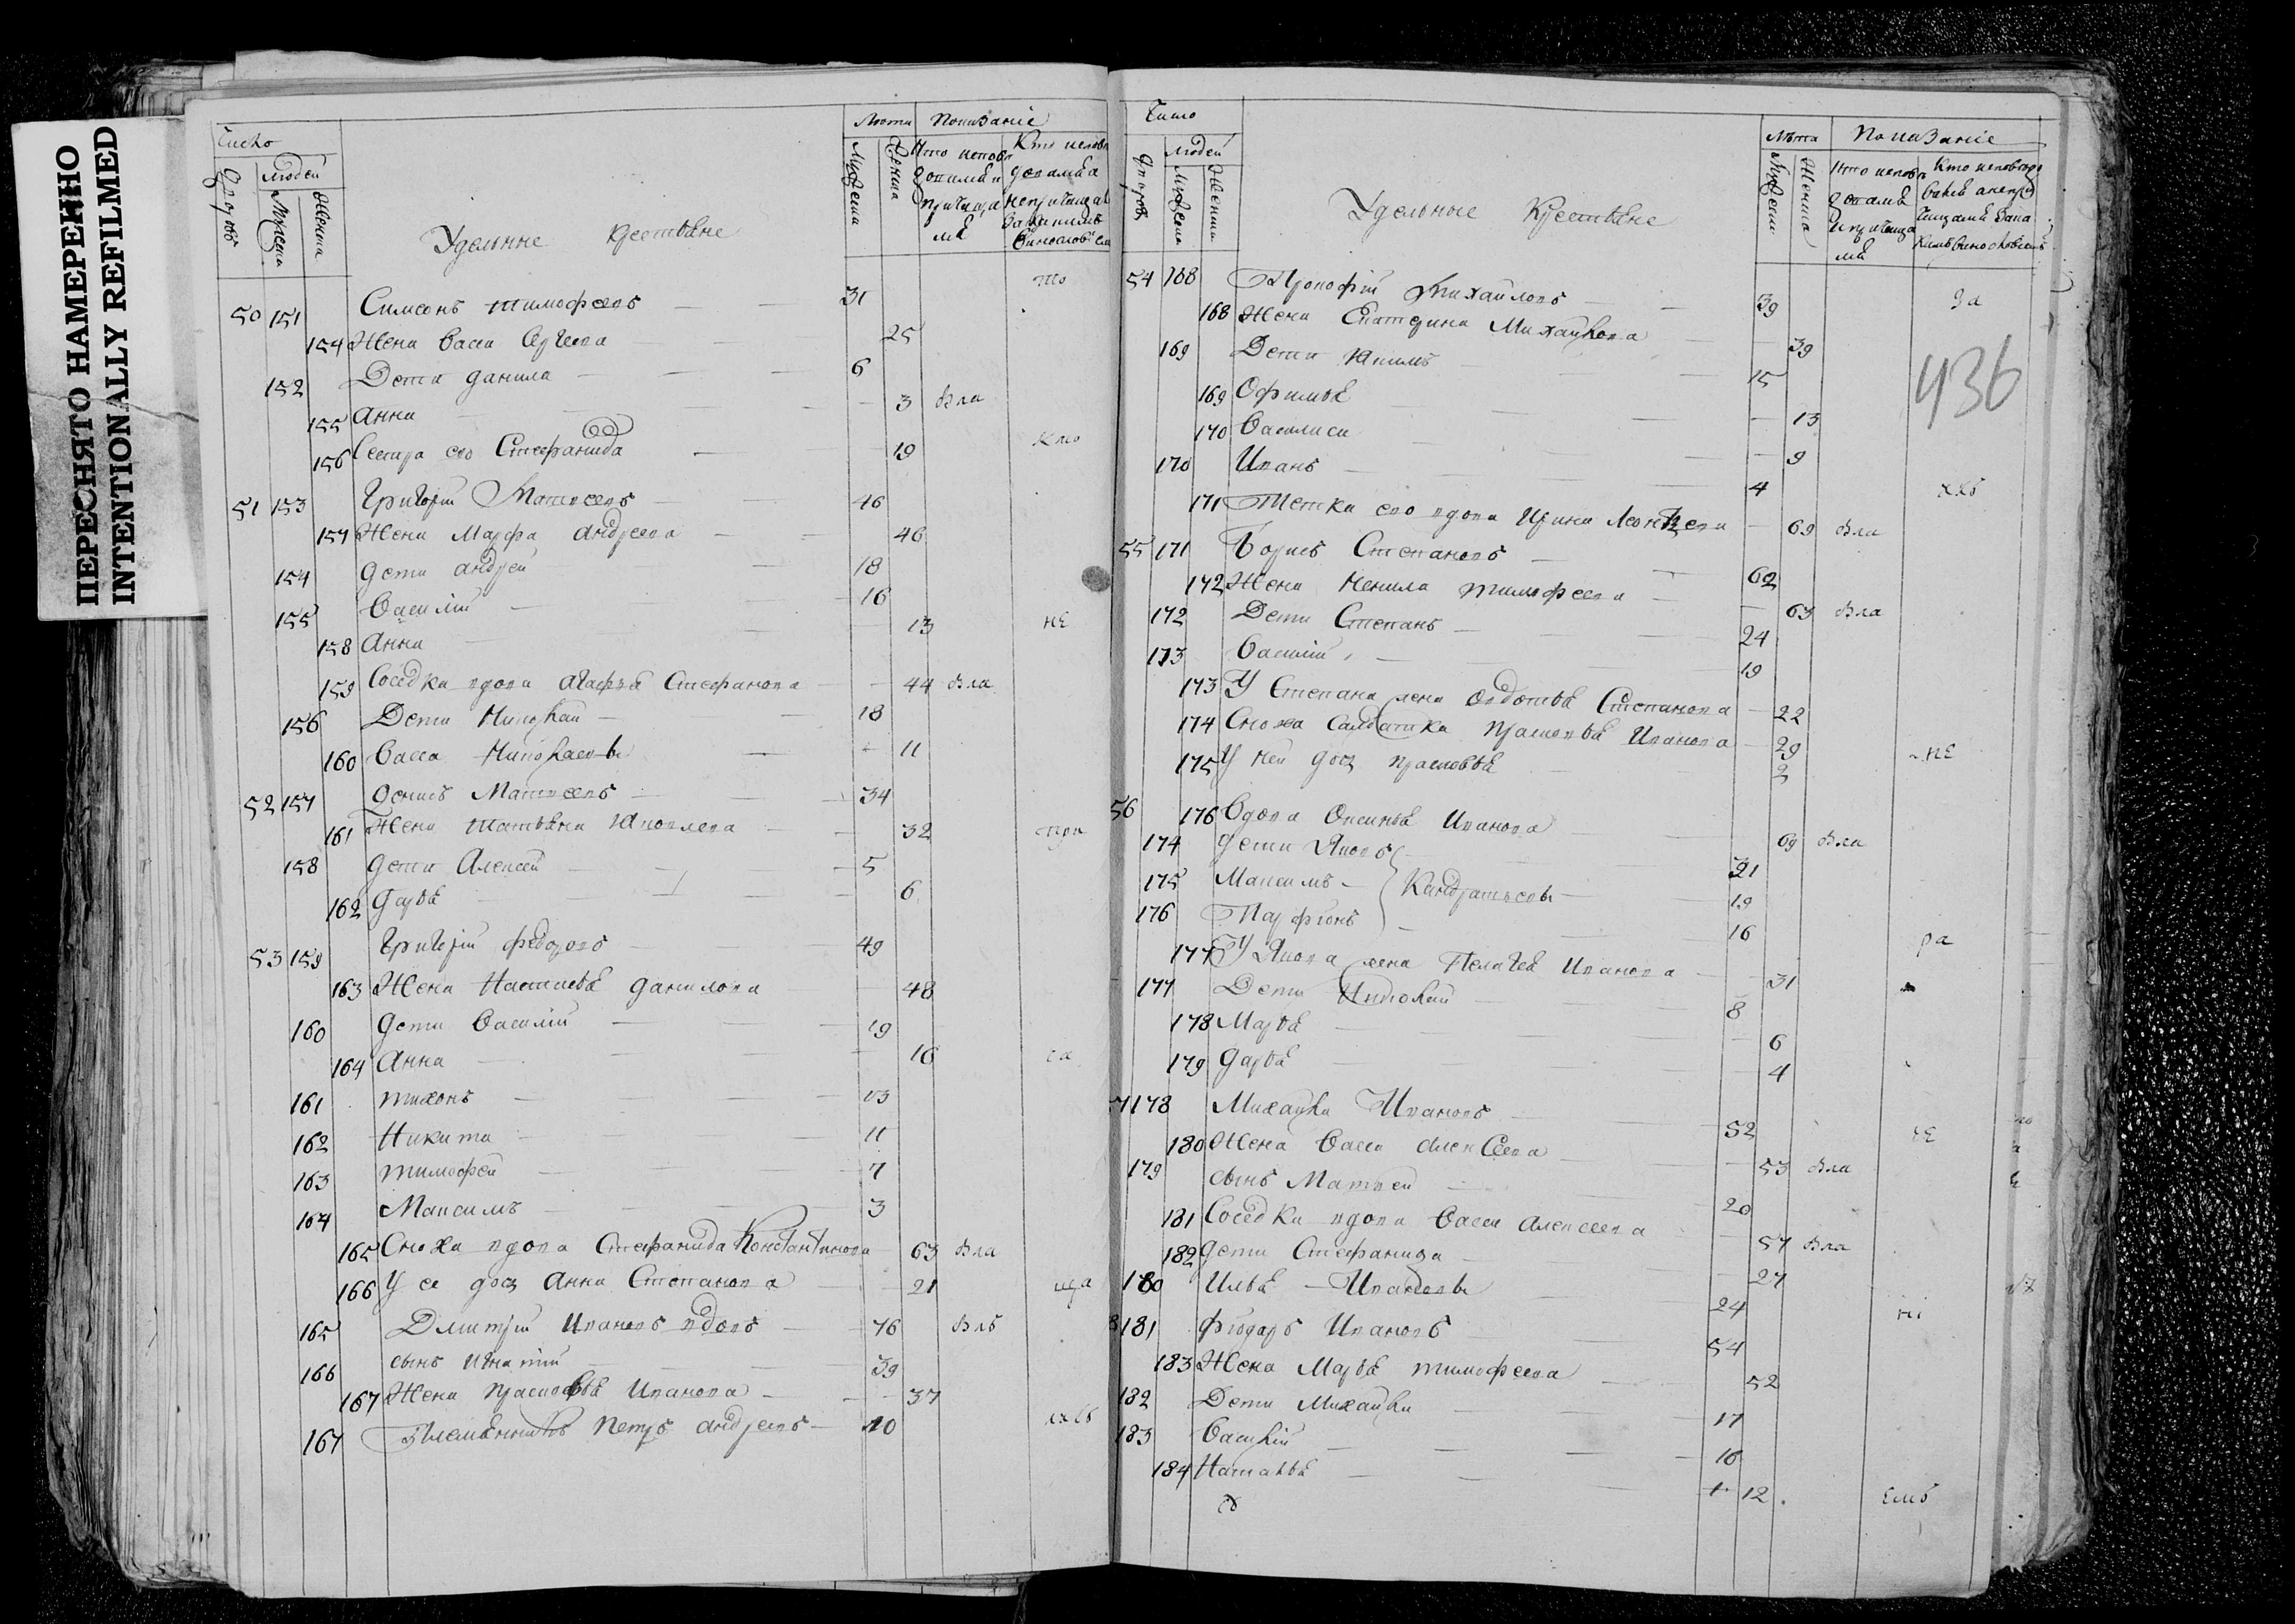 ПЕРЕСНЯТО НАМЕРЕННО
INTENTIONALLY REFILMED
Число
Людей
Мужеска
Женска
Лѣта
Показаніе
Мужеска
Женска
Удельные крестьяне
50 151 Симеонъ тимофеевъ 31
154 Жена васса 25
152 Дети данила 6
155 анна 3 Бла
156 Сестра ево Стефанида 19
51 153 Григорій Матвеевъ 46
157 Жена Марфа андреева 46
154 дети андрей 18
155 василій 16
158 анна 13
159 Соседка вдова агафья Стефанова 44 Бла
156 Дети Николай 18
160 васса Николаевы 11
52 157 денисъ Матвеевъ 34
161 Жена татьяна Яковлева 32
158 дети Алексей 5
162 дарья 6
53 159 Григорій федоровъ 49
163 Жена Настасья данилова 48
160 дети василій 19
164 анна 16
161 тихонъ 13
162 Никита 11
163 тимофей 7
164 Максимъ 3
165 Сноха вдова Стефанида Константинова 63 Бла
166 У ее дощ анна Степанова 21
165 Дмитрій ивановъ вдовъ 76 Блъ
166 сынъ игнатій 39
167 Жена прасковья иванова 37
167 Племянникъ петръ андреевъ 10
Число
Людей
Мужеска
Женска
Лѣта
Показаніе
Удельные Крестьяне
436
54 168 Прокофій Михайловъ 39
168 Жена Екатерина Михайлова 39
169 Дети Якимъ 15
169 Офимья 13
170 Василиса 9
170 Иванъ 4
171 Тетка ево вдова Ирина 69 Бла
55 171 Борисъ Степановъ 62
172 Жена Ненила тимофеева 63 Бла
172 Дети Степанъ 24
173 Василій 19
173 У Степана жена овдотья Степанова 22
174 Сноха салдатка прасковья Иванова 29
175 У ней дощ прасковья 2
56 176 Вдова Оксинья Иванова 69 Бла
174 дети Яковъ 31
175 Максимъ Кандратьевы 19
176 Парфіонъ 16
177 У Якова жена Пелагея Иванова 31
177 Дети Николай 8
178 Марья 6
179 дарья 4
178 Михайла Ивановъ 52
180 Жена васса алексеева 53 Бла
179 сынъ Матвей 20
181 Соседка вдова васса алексеева 57 Бла
182 дети Стефанида 27
180 Илья Ивановы 24
181 Фіодаръ Ивановъ 54
183 Жена Марья тимофеева 52
182 Дети Михайла 17
183 Василій 16
184 Наталья 12